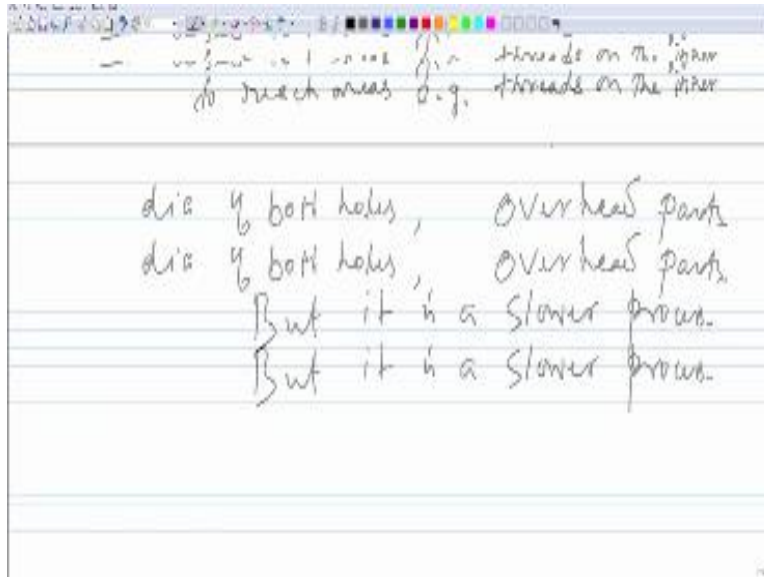 threads on the inner
to reach areas e.g. threads on the inner
dia of bolt holes, overhead parts
dia of bolt holes, overhead parts.
But it is a slower process.
But it is a slower process.